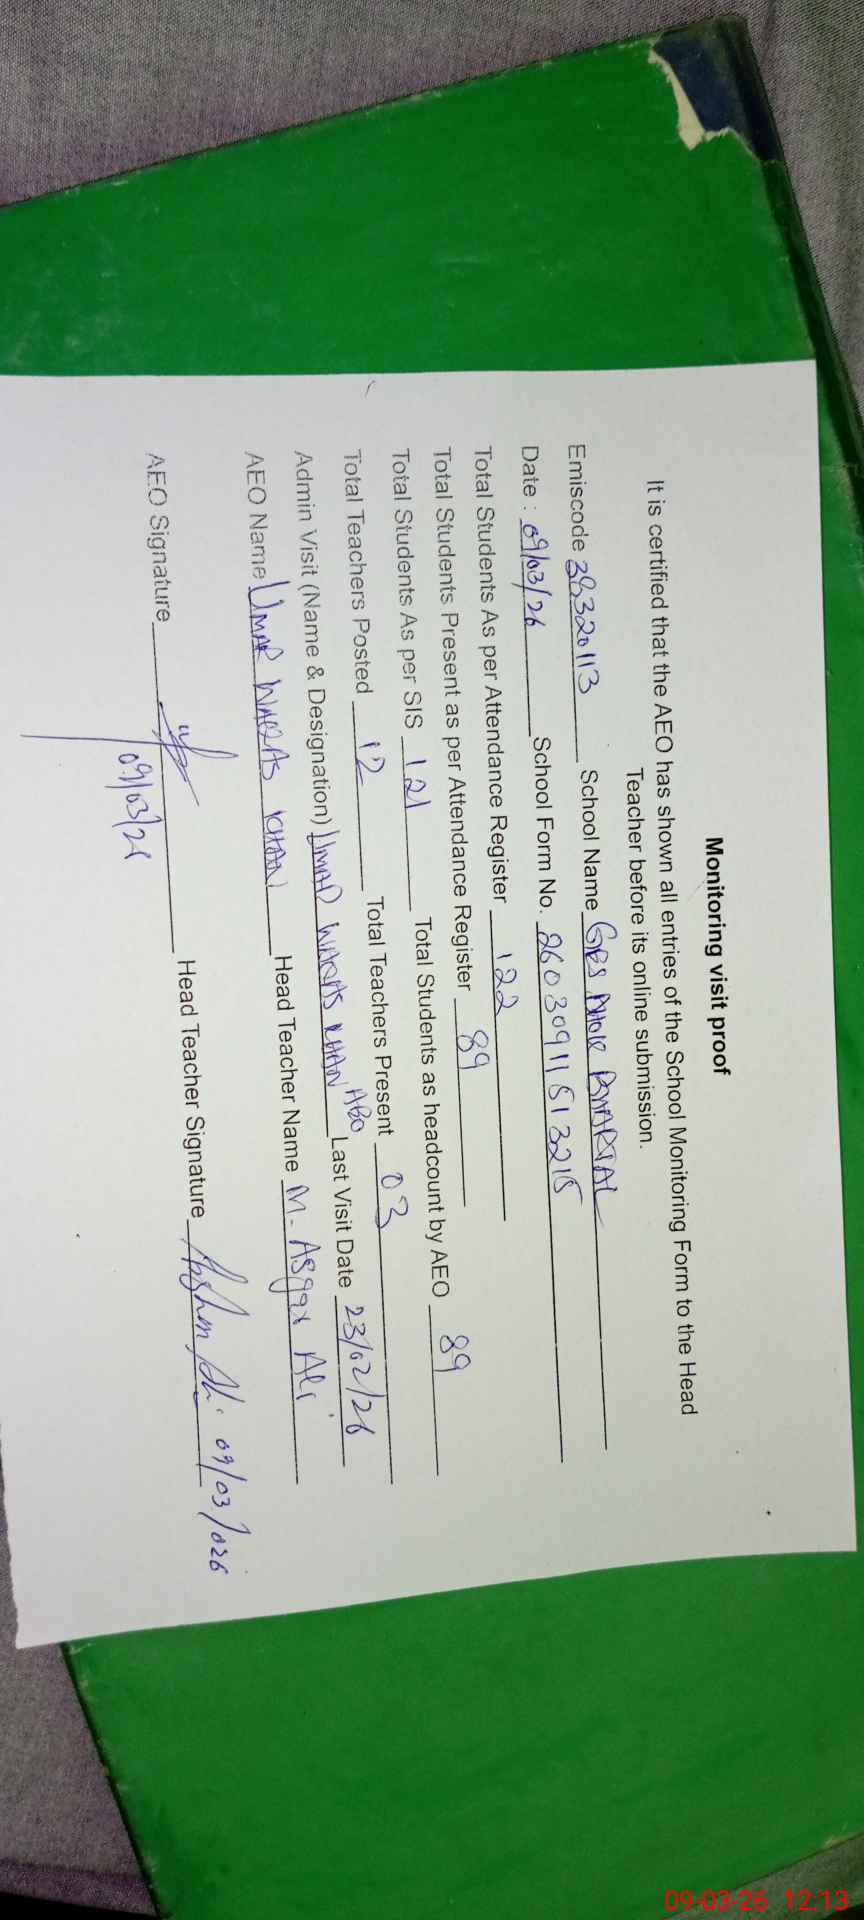 Monitoring visit proof
It is certified that the AEO has shown all entries of the School Monitoring Form to the Head
Teacher before its online submission.
Emiscode 38320113 School Name GES
Date : 09/03/26 School Form No.
Total Students As per Attendance Register 122
Total Students Present as per Attendance Register 89
Total Students As per SIS 121 Total Students as headcount by AEO 89
Total Teachers Posted 12 Total Teachers Present 03
Admin Visit (Name & Designation) UMAR WAQAS KHAN Last Visit Date 23/02/26
AEO Name UMAR WAQAS KHAN Head Teacher Name M. Asgar Ali
AEO Signature Head Teacher Signature 09/03/026
09/03/26
09-03-26 12:13